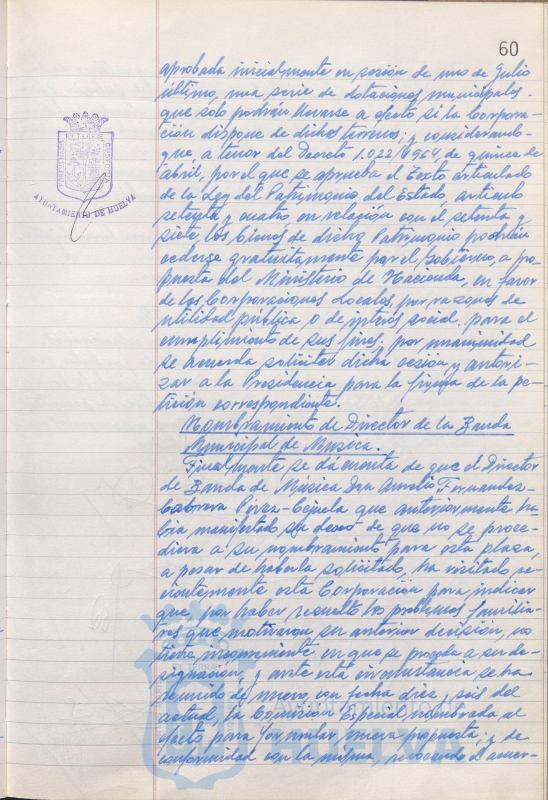 60
aprobada inicialmente en sesión de uno de Julio
último, una serie de dotaciones municipales
que solo podrán llevarse a efecto si la Corpora-
ción dispone de dichos terrenos; y considerando
que a tenor del Decreto 1.022/1964, de quince de
abril, por el que se aprueba el Texto articulado
de la Ley del Patrimonio del Estado, artículo
setenta y cuatro en relación con el setenta y
siete, los bienes de dicho Patrimonio podrán
cederse gratuitamente por el Gobierno, a pro-
puesta del Ministerio de Hacienda, en favor
de las Corporaciones Locales, por razones de
utilidad pública o de interés social, para el
cumplimiento de sus fines, por unanimidad
se acuerda solicitar dicha cesión y autori-
zar a la Presidencia para la firma de la pe-
tición correspondiente.
Nombramiento de Director de la Banda
Municipal de Musica.
Finalmente se dá cuenta de que el Director
de Banda de Música Don Aurelio Fernandez-
Cabrera Pérez-Cejuela que anteriormente ha-
bia manifestado su deseo de que no se proce-
diera a su nombramiento para esta plaza,
a pesar de haberla solicitado, ha visitado re-
cientemente esta Corporación para indicar
que, por haber resuelto los problemas familia-
res que motivaron su anterior decisión, no
tiene inconveniente en que se proceda a su de-
signación; y ante esta circunstancia se ha
reunido de nuevo, con fecha diez y seis del
actual, la Comisión Especial nombrada al
efecto para formular nueva propuesta; y de
conformidad con la misma, revocando el acuer-
AYUNTAMIENTO DE HUELVA
Ayuntamiento de
HUELVA